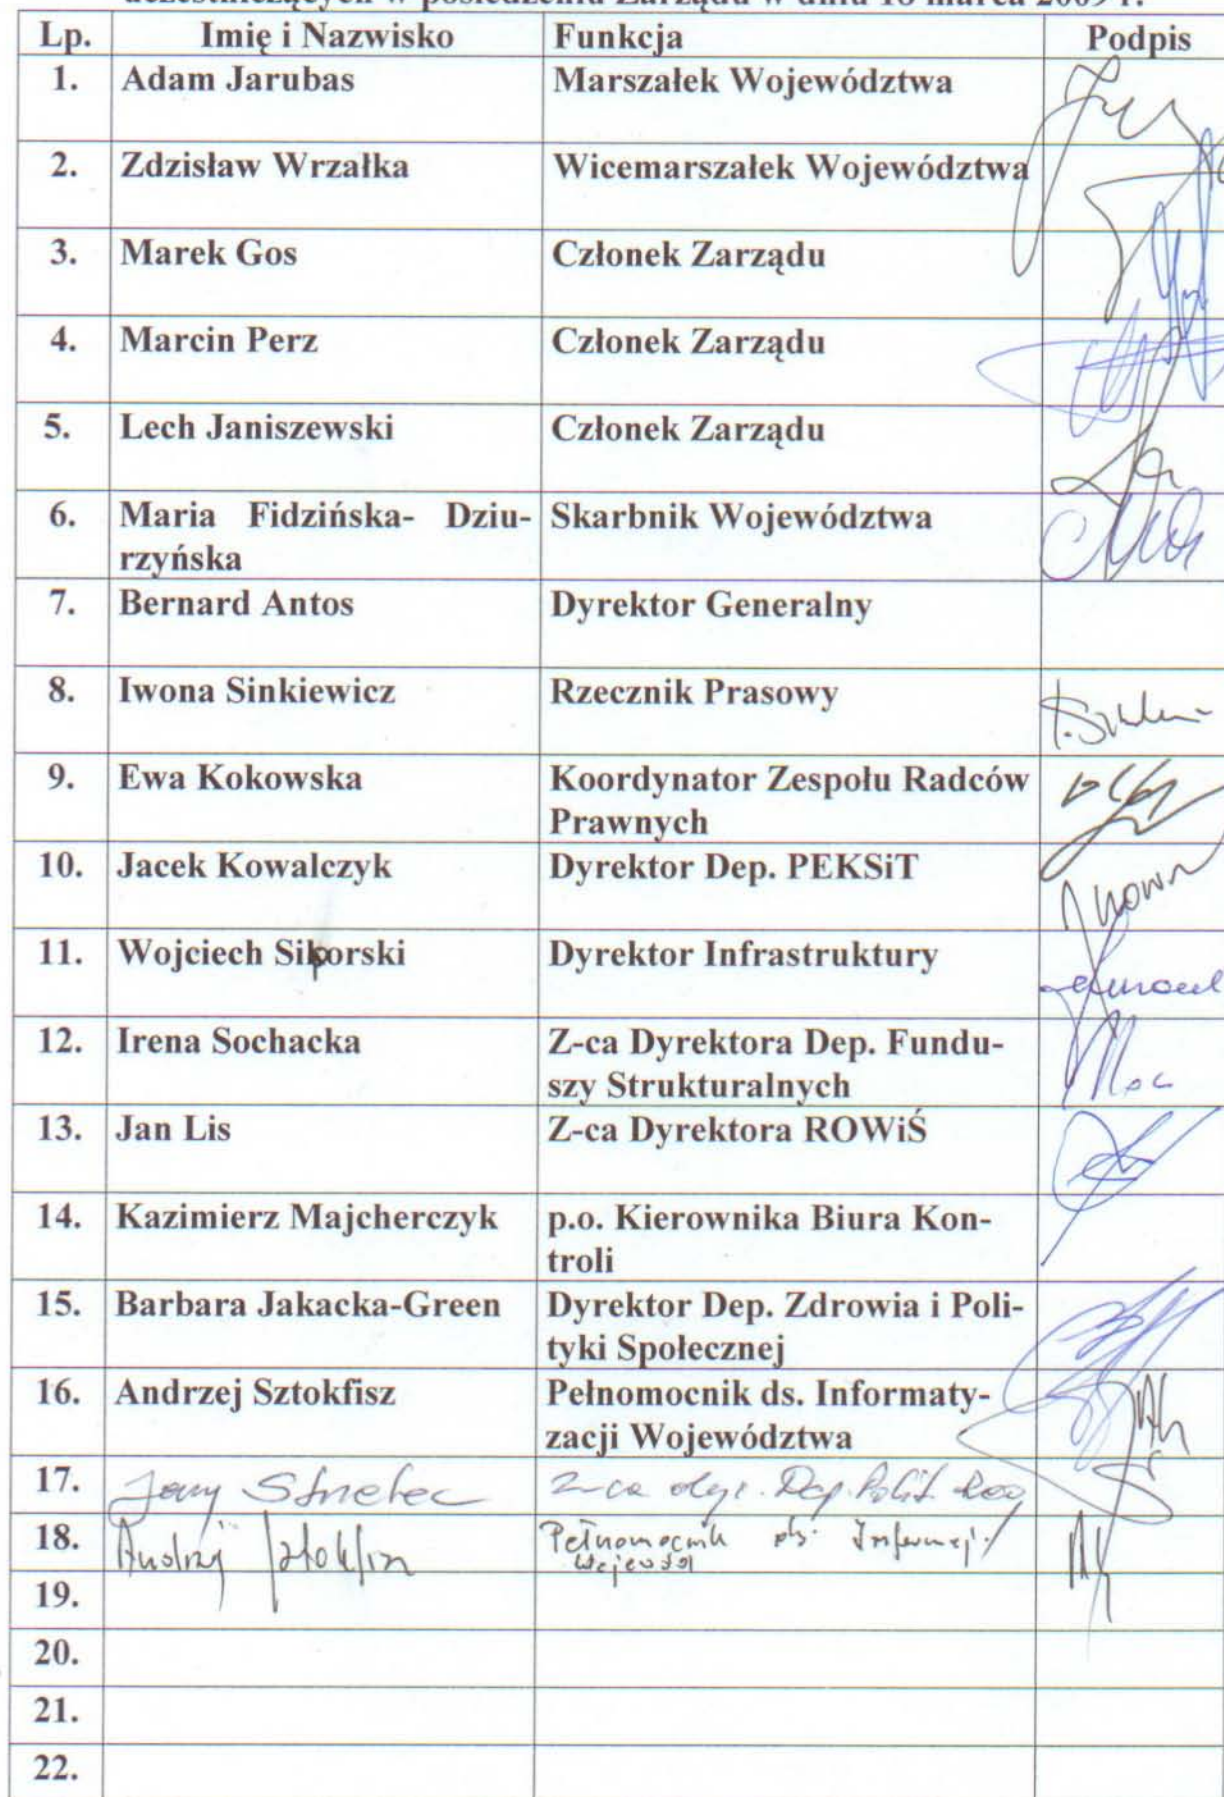 uczestniczących w posiedzeniu Zarządu w dniu 18 marca 2009 r.
Lp. Imię i Nazwisko Funkcja Podpis
1. Adam Jarubas Marszałek Województwa
2. Zdzisław Wrzałka Wicemarszałek Województwa
3. Marek Gos Członek Zarządu
4. Marcin Perz Członek Zarządu
5. Lech Janiszewski Członek Zarządu
6. Maria Fidzińska- Dziu- Skarbnik Województwa
rzyńska
7. Bernard Antos Dyrektor Generalny
8. Iwona Sinkiewicz Rzecznik Prasowy
9. Ewa Kokowska Koordynator Zespołu Radców
Prawnych
10. Jacek Kowalczyk Dyrektor Dep. PEKSiT
11. Wojciech Siporski Dyrektor Infrastruktury
12. Irena Sochacka Z-ca Dyrektora Dep. Fundu-
szy Strukturalnych
13. Jan Lis Z-ca Dyrektora ROWiŚ
14. Kazimierz Majcherczyk p.o. Kierownika Biura Kon-
troli
15. Barbara Jakacka-Green Dyrektor Dep. Zdrowia i Poli-
tyki Społecznej
16. Andrzej Sztokfisz Pełnomocnik ds. Informaty-
zacji Województwa
17. Z-ca dyr. Dep. Polit.
18. Andrzej Sztokfisz Pełnomocnik ds.
19.
20.
21.
22.